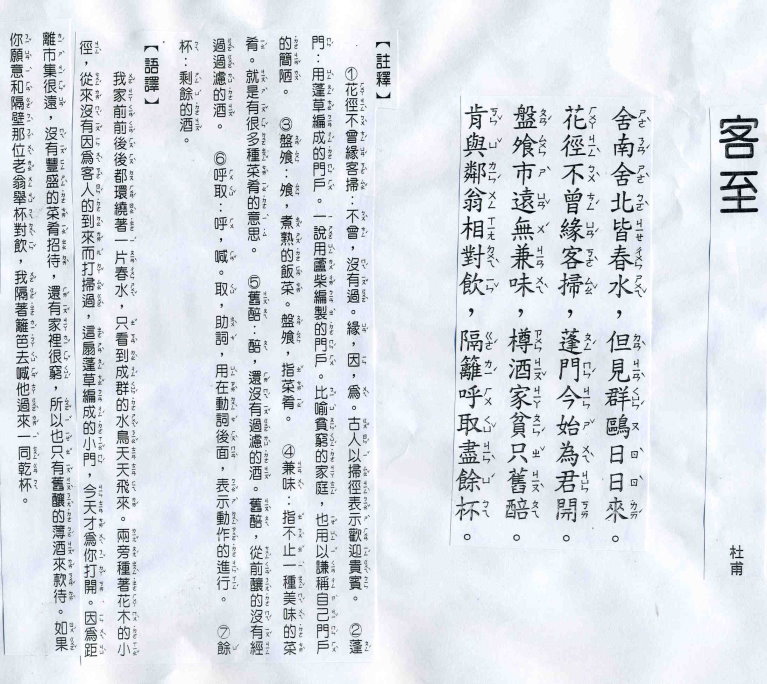 客至
杜甫
舍南舍北皆春水，但見群鷗日日來。
花徑不曾緣客掃，蓬門今始為君開。
盤飧市遠無兼味，樽酒家貧只舊醅。
肯與鄰翁相對飲，隔籬呼取盡餘杯。
【註釋】
①花徑不曾緣客掃：不曾，沒有過。緣，因，為。古人以掃徑表示歡迎貴賓。 ②蓬
門：用蓬草編成的門戶。一說用蘆柴編製的門戶。比喻貧窮的家庭，也用以謙稱自己門戶
的簡陋。 ③盤飧：飧，煮熟的飯菜。盤飧，指菜肴。 ④兼味：指不止一種美味的菜
肴。就是有很多種菜肴的意思。 ⑤舊醅：醅，還沒有過濾的酒。舊醅，從前釀的沒有經
過過濾的酒。 ⑥呼取：呼，喊。取，助詞，用在動詞後面，表示動作的進行。 ⑦餘
杯：剩餘的酒。
【語譯】
我家前前後後都環繞著一片春水，只看到成群的水鳥天天飛來。兩旁種著花木的小
徑，從來沒有因為客人的到來而打掃過，這扇蓬草編成的小門，今天才為你打開。因為距
離市集很遠，沒有豐盛的菜肴招待，還有家裡很窮，所以也只有舊釀的薄酒來款待。如果
你願意和隔壁那位老翁舉杯對飲，我隔著籬笆去喊他過來一同乾杯。